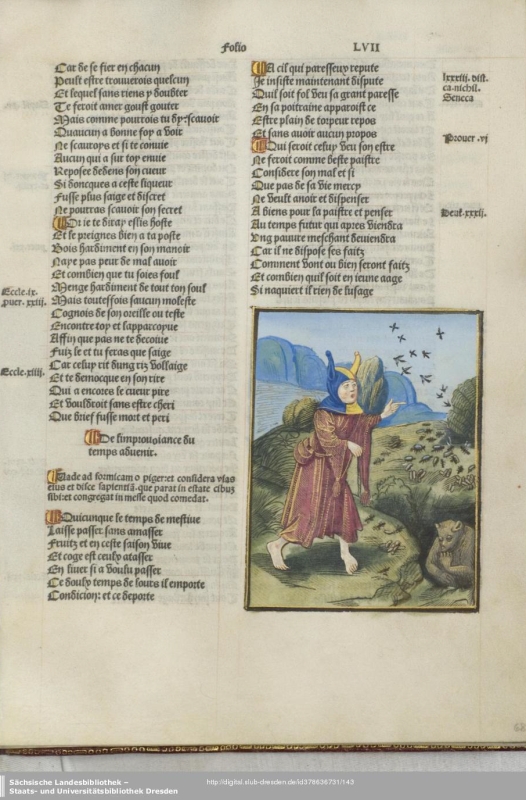 Folio LVII
Car de se fier en chacun
Peult estre trouverois quelcun
Et lequel sans riens y doubter
Te feroit amer goust gouter
Mais comme pourrois tu dy: scavoir
Quaucun a bonne foy a voir
Ne scaurois et si te convie
Aucun qui a sur toy envie
Reposer dedens son cueur
Si doncques a ceste liqueur
Fusse plus saige et discret
Ne pourras scavoir son secret
Or ie te diray esliz hoste
Et le preignes bien a ta poste
Bois hardiment en son manoir
Naye pas peur de mal avoir
Et combien que tu soies soul
Menge hardiment de tout ton soul
Eccle.ix.
puer. xxiij.
Mais toutesfois saucun moleste
Cognois de son oreille ou teste
Encontre toy et lapparcoyue
Affin que pas ne te decoiue
Fuiz le et tu feras que saige
Eccle.xiiij.
Car celuy rit dung riz vollaige
Et te democque en son rire
Qui a encores le cueur pire
Et vouldroit sans estre cheri
Que brief fusse mort et peri
De limprouoiance du
temps aduenir.
Uade ad formicam o piger: et considera vias
eius et disce sapientiã. que parat in estate cibuz
sibi: et congregat in messe quod comedat.
Quicunque le temps de mestiue
Laisse passer sans amasser
Fruitz et en ceste saison viue
Et coge est ceuly atasser
En liuer si a voulu passer
Ce doulx temps de lours il emporte
Condicion: et ce deporte
Va cil qui paresseux repute
Je insiste maintenant dispute
Quil soit fol veu sa grant paresse
En sa poitraine apparoist ce
Estre plain de torpeur repos
Et sans avoir aucun propos
Qui seroit celuy veu son estre
Ne seroit comme beste paistre
Considere son mal et si
Que pas de sa vie mercy
Ne veult anoit et dispenser
A biens pour sa paistre et penser
Au temps futur qui apres viendra
Ung pauure meschant deuiendra
Car il ne dispose ses faitz
Comment vont ou bien seront faitz
Et combien quil soit en ieune aage
Si naquiert il rien de lusage
lxxxiii. dist.
ca. nichil.
Seneca
Prouer .vj
Deut.xxxij.
Sächsische Landesbibliothek –
Staats- und Universitätsbibliothek Dresden
http://digital.slub-dresden.de/id378636731/143